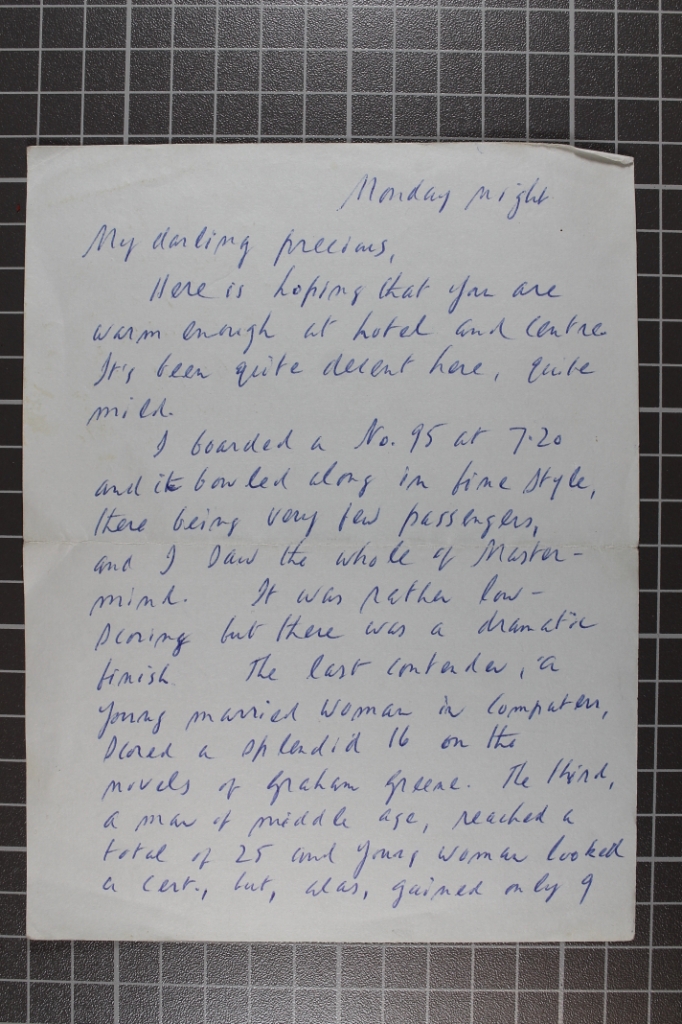 Monday night
My darling precious,
Here is hoping that you are
warm enough at hotel and Centre
It's been quite decent here, quite
mild.
I boarded a No. 95 at 7.20
and it bowled along in fine style,
there being very few passengers,
and I saw the whole of Master-
mind. It was rather low-
scoring but there was a dramatic
finish. The last contender, a
young married woman in computers,
scored a splendid 16 on the
novels of Graham Greene. The third,
a man of middle age, reached a
total of 25 and young woman looked
a cert., but, alas, gained only 9